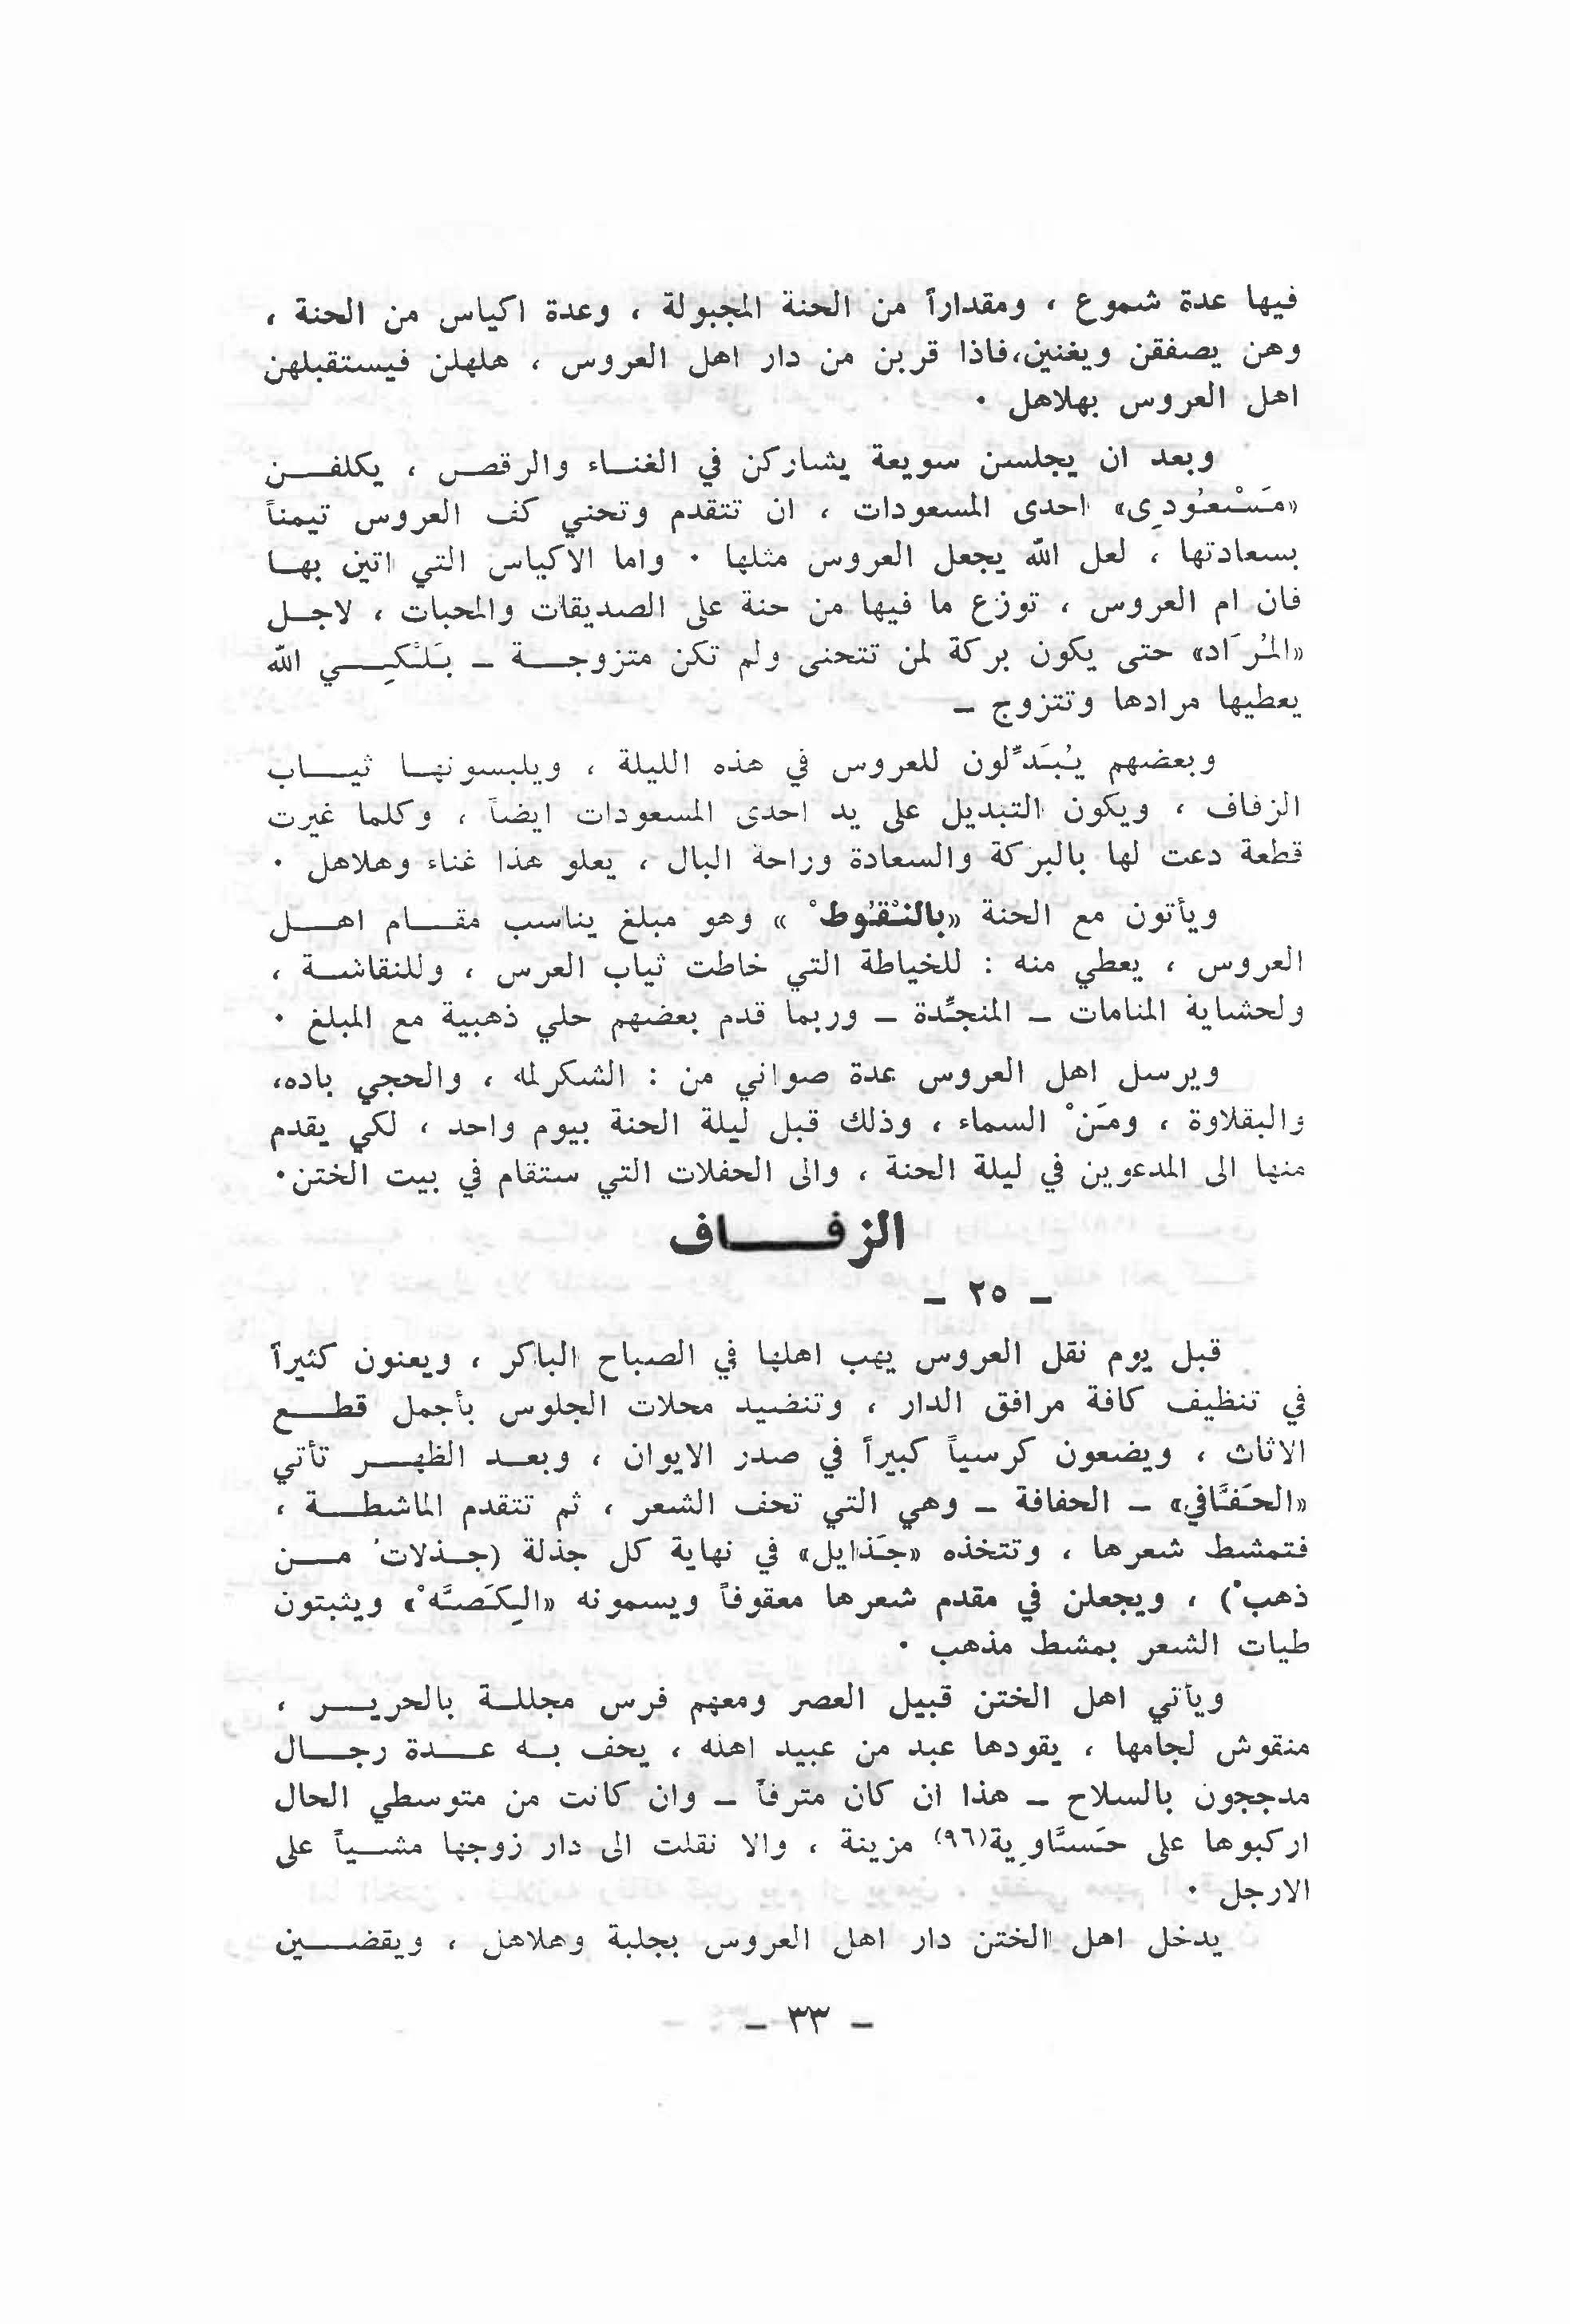 فيها عدة شموع ، ومقداراً من الحنة المجبولة ، وعدة اكياس من الحنة ،
وهن يصفقن ويغنين،فاذا قربن من دار اهل العروس ، هلهلن فيستقبلهن
اهل العروس بهلاهل .
وبعد ان يجلسن سويعة يشاركن في الغناء والرقص ، يكلفن
«مَسْعُودِى» احدى المسعودات ، ان تتقدم وتحني كف العروس تيمناً
بسعادتها ، لعل الله يجعل العروس مثلها . واما الاكياس التي اتين بها
فان ام العروس ، توزع ما فيها من حنة على الصديقات والمحبات ، لاجل
«المُرَاد» حتى يكون بركة لمن تتحنى ولم تكن متزوجة – بَلْكِي الله
يعطيها مرادها وتتزوج –
وبعضهم يُبَدِّلون للعروس في هذه الليلة ، ويلبسونها ثياب
الزفاف ، ويكون التبديل على يد احدى المسعودات ايضاً ، وكلما غيرت
قطعة دعت لها بالبركة والسعادة وراحة البال ، يعلو هذا غناء وهلاهل .
ويأتون مع الحنة «بالنْقُوطْ » وهو مبلغ يناسب مقام اهل
العروس ، يعطي منه : للخياطة التي خاطت ثياب العرس ، وللنقاشة ،
ولحشاية المنامات – المنجِّدة – وربما قدم بعضهم حلي ذهبية مع المبلغ .
ويرسل اهل العروس عدة صواني من : الشكرلمه ، والحجي باده،
والبقلاوة ، ومَنْ السماء ، وذلك قبل ليلة الحنة بيوم واحد ، لكي يقدم
منها الى المدعوين في ليلة الحنة ، والى الحفلات التي ستقام في بيت الختن.
الزفاف
– ٢٥ –
قبل يوم نقل العروس يهب اهلها في الصباح الباكر ، ويعنون كثيراً
في تنظيف كافة مرافق الدار ، وتنضيد محلات الجلوس بأجمل قطع
الاثاث ، ويضعون كرسياً كبيراً في صدر الايوان ، وبعد الظهر تأتي
«الحَفَّافي» – الحفافة – وهي التي تحف الشعر ، ثم تتقدم الماشطة ،
فتمشط شعرها ، وتتخذه «جَذايل» في نهاية كل جذلة (جذلاتْ من
ذهبْ) ، ويجعلن في مقدم شعرها معقوفاً ويسمونه «الِكَصَّهْ» ويثبتون
طيات الشعر بمشط مذهب .
ويأتي اهل الختن قبيل العصر ومعهم فرس مجللة بالحرير ،
منقوش لجامها ، يقودها عبد من عبيد اهله ، يحف به عدة رجال
مدججون بالسلاح – هذا ان كان مترفاً – وان كانت من متوسطي الحال
اركبوها على حَسَّاوِية(٩٦) مزينة ، والا نقلت الى دار زوجها مشياً على
الارجل .
يدخل اهل الختن دار اهل العروس بجلبة وهلاهل ، ويقضين
– ٣٣ –